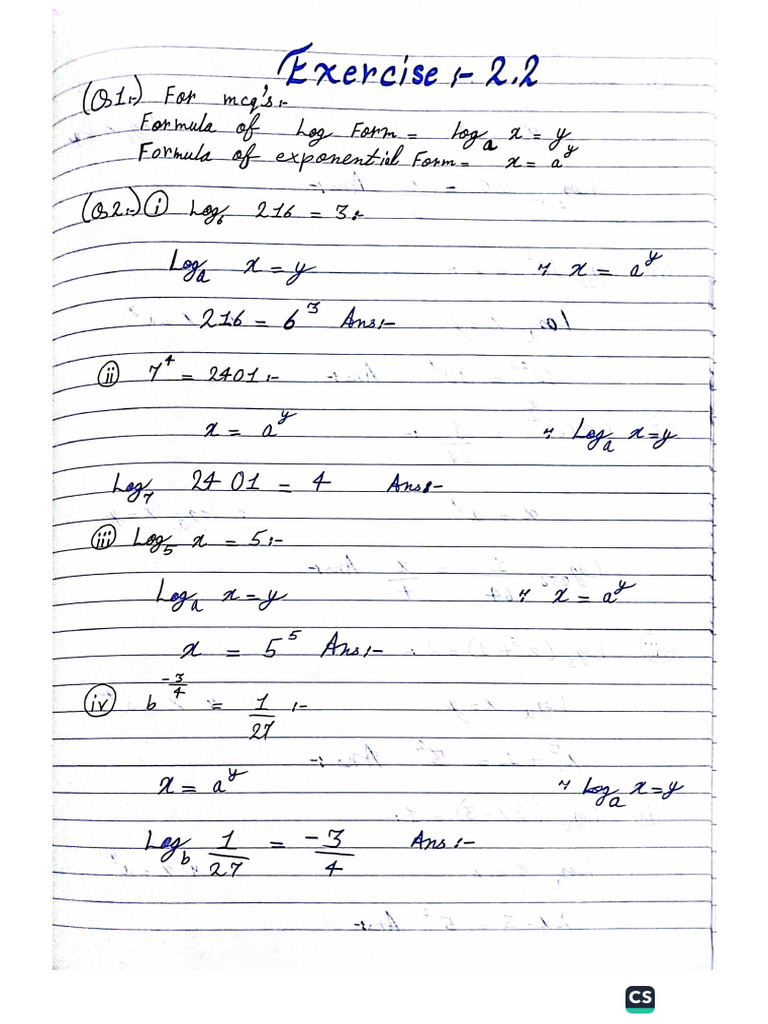 Exercise:- 2.2
(Q1:-) For mcq's:-
Formula of Log Form = logₐ x = y
Formula of exponential Form = x = a^y
(Q2:-) (i) Log₆ 216 = 3:-
Logₐ x = y ∵ x = a^y
216 = 6³ Ans:-
(ii) 7⁴ = 2401:-
x = a^y ∵ Logₐ x = y
Log₇ 2401 = 4 Ans:-
(iii) Log₅ x = 5:-
Logₐ x = y ∵ x = a^y
x = 5⁵ Ans:-
(iv) b^(-3/4) = 1/27 :-
x = a^y ∵ Logₐ x = y
Log_b 1/27 = -3/4 Ans:-
CS